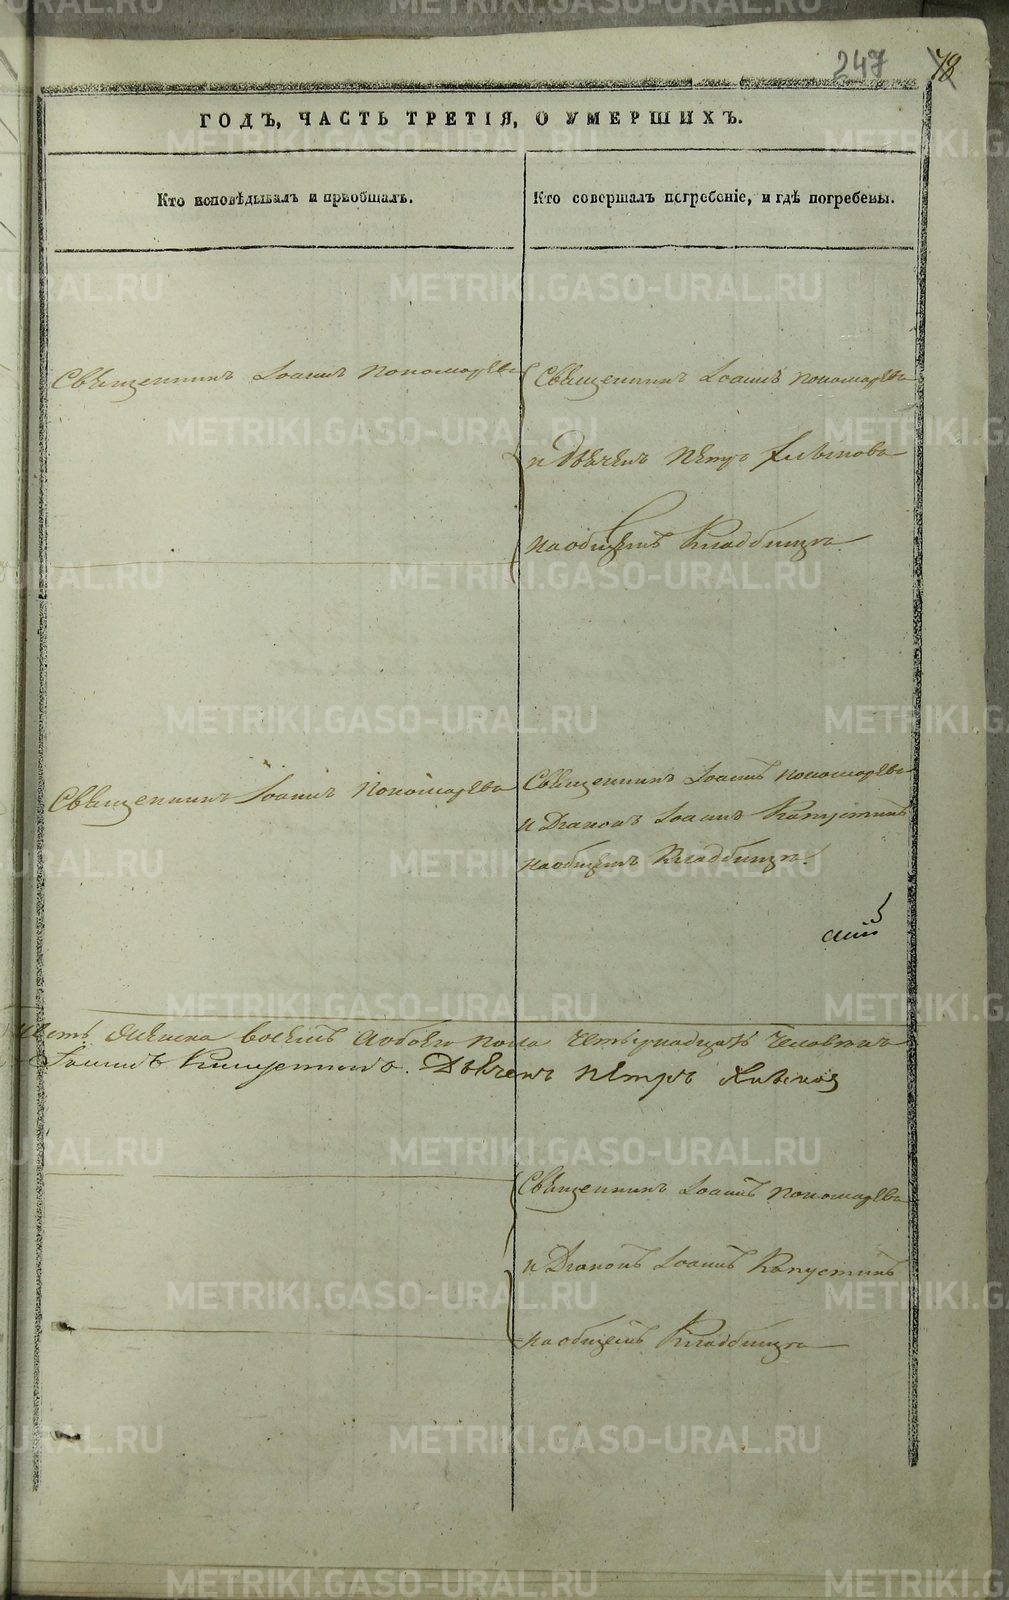 247
78
ГОДЪ, ЧАСТЬ ТРЕТІЯ, О УМЕРШИХЪ.
Кто исповѣдывалъ и пріобщалъ.
Кто совершалъ погребеніе, и гдѣ погребены.
Священникъ Іоаннъ Пономаревъ
Священникъ Іоаннъ Пономаревъ
и Дьячекъ Петръ
на общемъ Кладбищѣ
Священникъ Іоаннъ Пономаревъ
Священникъ Іоаннъ Пономаревъ
и Діаконъ Іоаннъ Капустинъ
на общемъ Кладбищѣ.
женска восемь а обоего пола четырнадцать человѣкъ
Іоаннъ Капустинъ. Дьячекъ Петръ
Священникъ Іоаннъ Пономаревъ
и Діаконъ Іоаннъ Капустинъ
на общемъ Кладбищѣ
METRIKI.GASO-URAL.RU